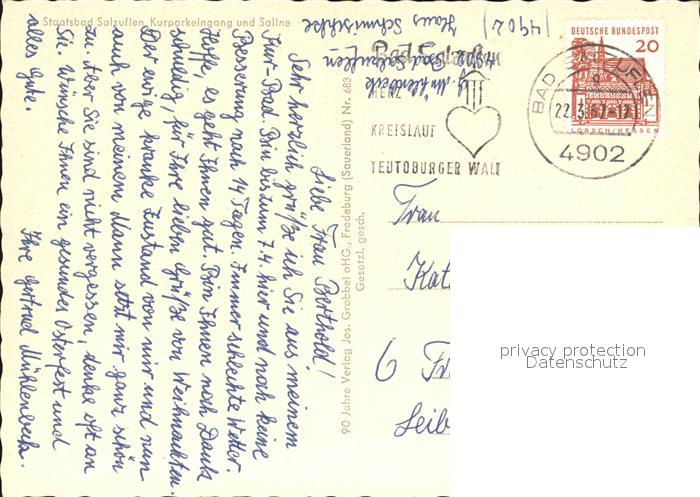 Staatsbad Salzuflen, Kurparkeingang und Saline
90 Jahre Verlag Jos. Grobbel oHG., Fredeburg (Sauerland) Nr. 683
Gesetzl. gesch.
Liebe Frau Berthold!
Sehr herzlich grüße ich Sie aus meinem
Kur-Bad. Bin bis zum 7.4. hier und noch keine
Besserung nach 14 Tagen. Immer schlechte Wetter.
Hoffe, es geht Ihnen gut. Bin Ihnen noch Dank
schuldig, für Ihre lieben Grüße von Weihnachten.
Der ewige kranke Zustand von mir und nun
auch von meinem Mann setzt mir ganz schön
zu. Aber Sie sind nicht vergessen, denke oft an
Sie. Wünsche Ihnen ein gesundes Osterfest und
alles Gute.
Ihre Gertrud Mühlenbeck.
Mühlenbeck
4902 Bad Salzuflen
Haus Schmischke
(4902)
HERZ
KREISLAUF
TEUTOBURGER WALD
BAD SALZUFLEN
g
22.3.67-17
4902
DEUTSCHE BUNDESPOST
20
LORSCH/HESSEN
Frau
6
privacy protection
Datenschutz